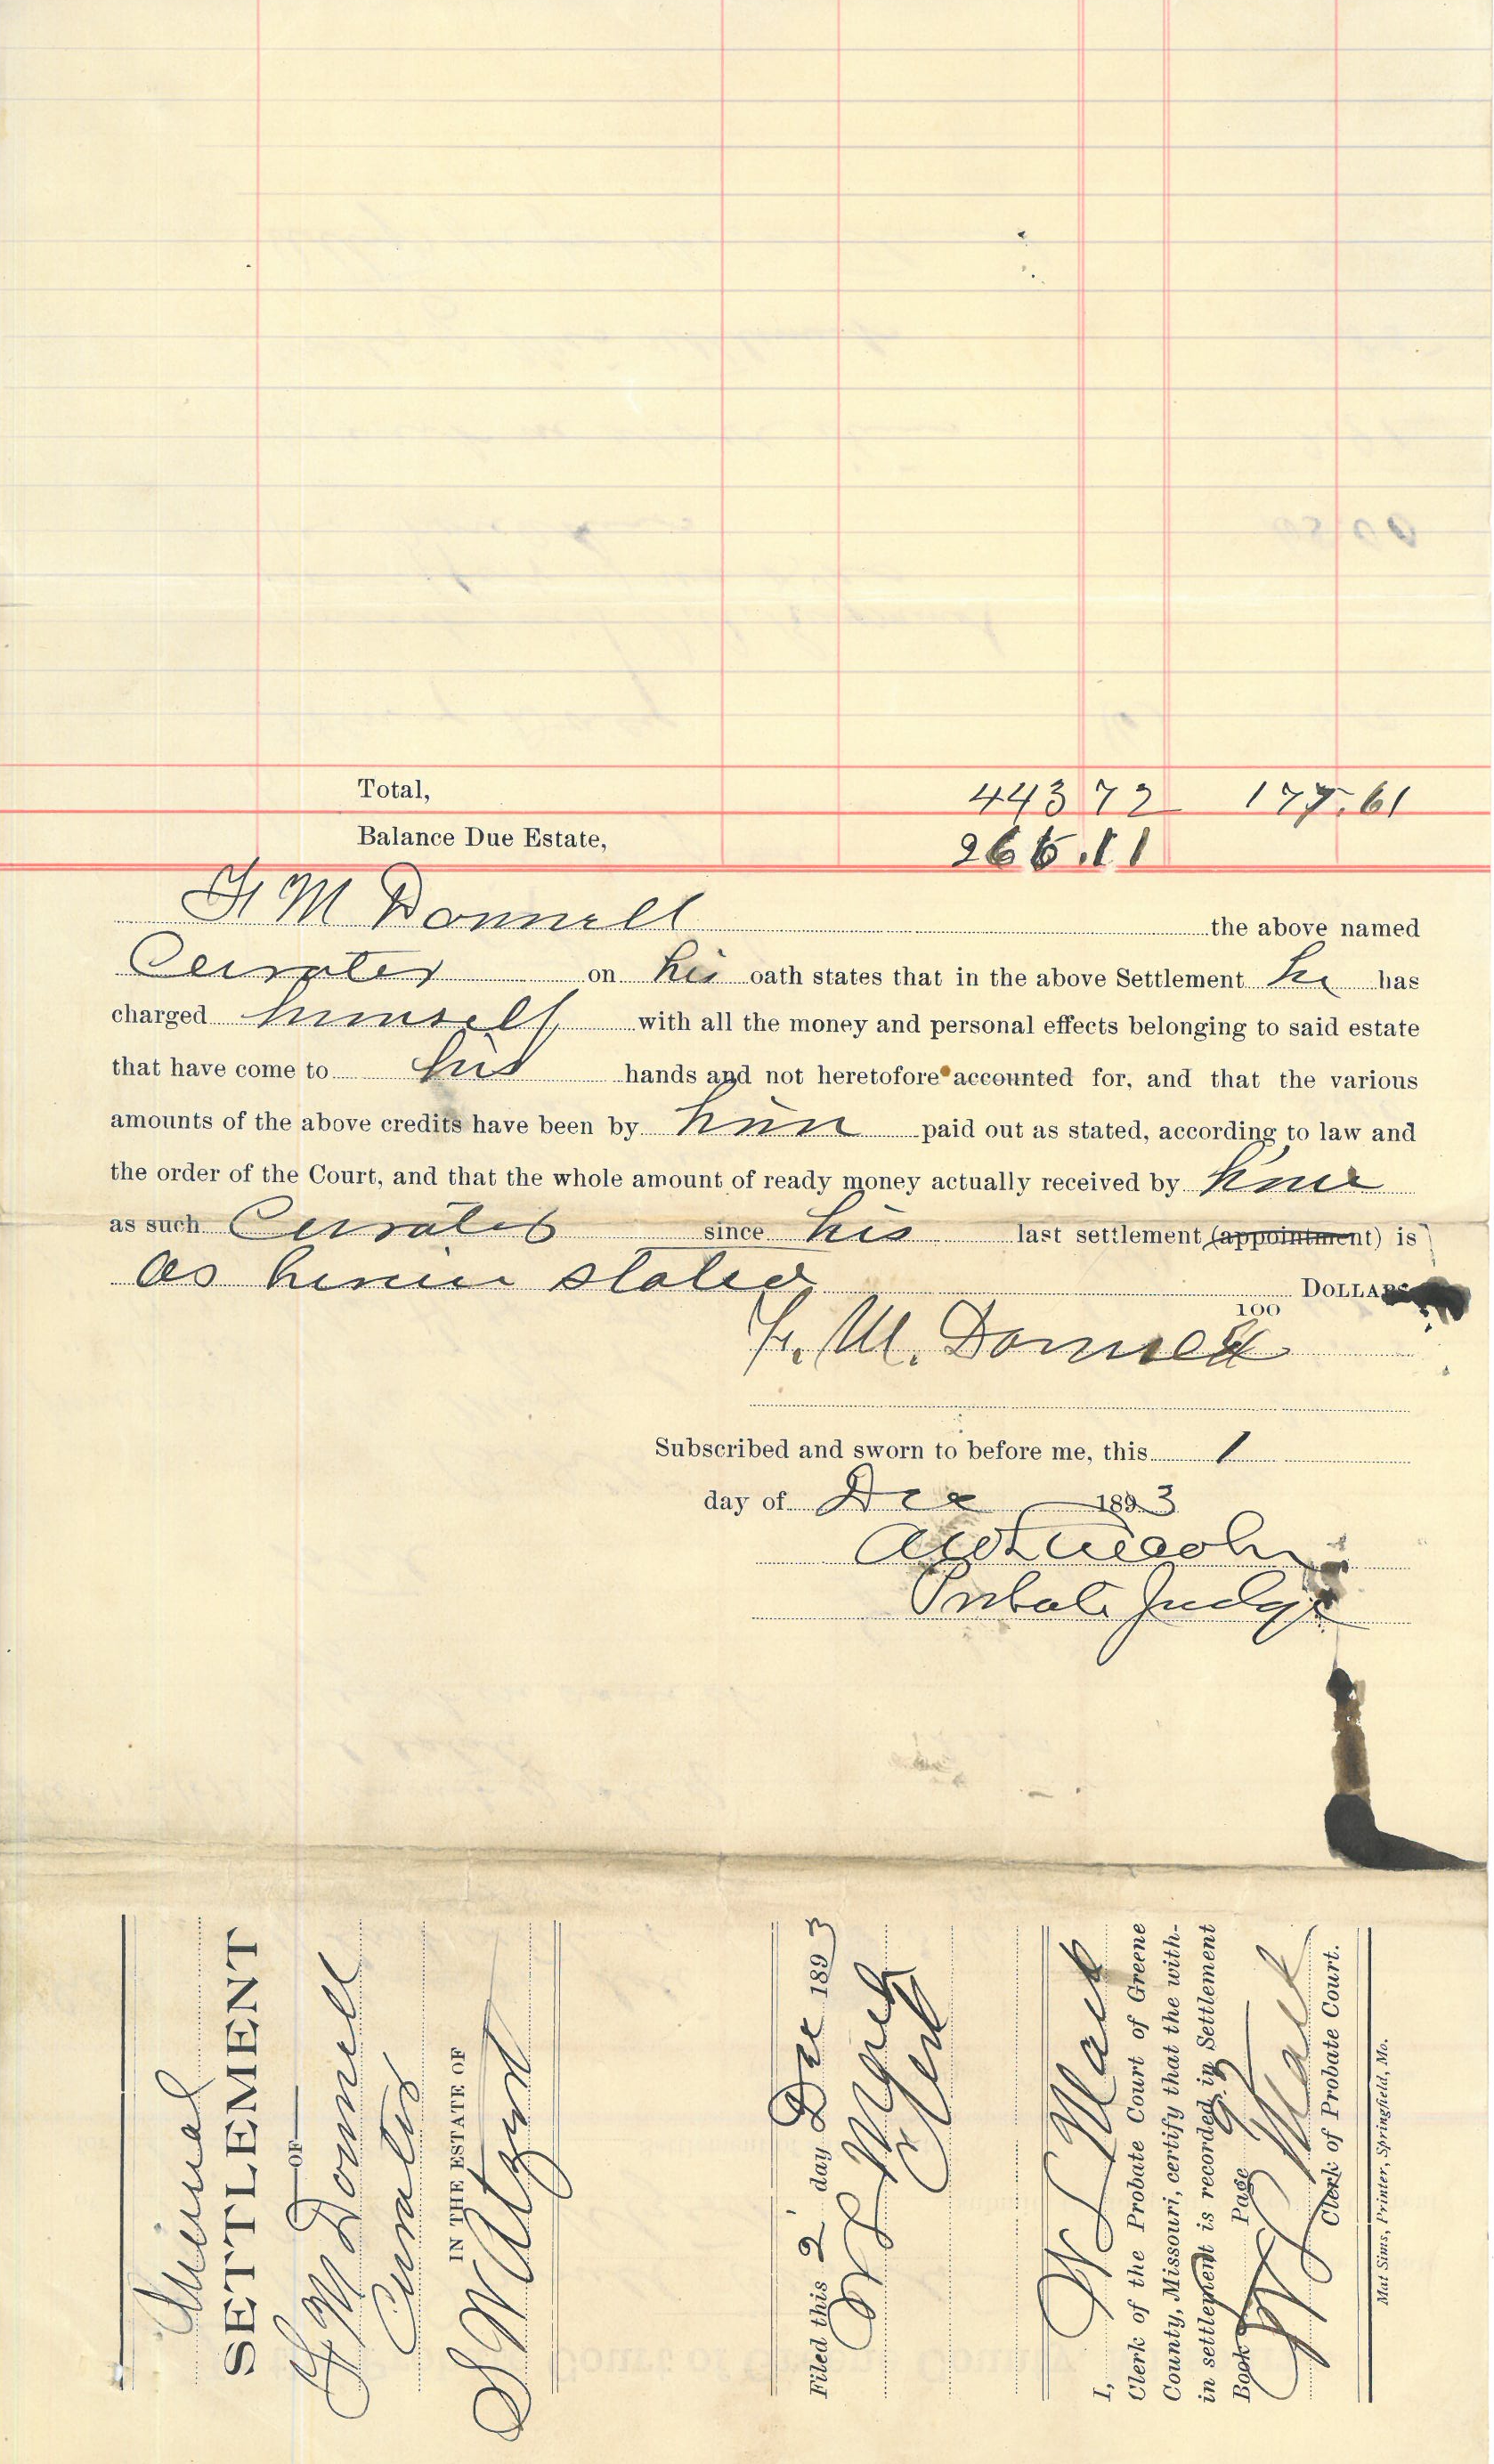 Total, 443 72 177.61
Balance Due Estate, 266.11
F M Donnell the above named
Curator on his oath states that in the above Settlement he has
charged himself with all the money and personal effects belonging to said estate
that have come to his hands and not heretofore accounted for, and that the various
amounts of the above credits have been by him paid out as stated, according to law and
the order of the Court, and that the whole amount of ready money actually received by him
as such Curator since his last settlement (appointment) is
as herein stated DOLLARS
100
F. M. Donnell
Subscribed and sworn to before me, this 1
day of Dec 1893
Lincoln
Probate Judge
Annual
SETTLEMENT
OF
F M Donnell
Curator
IN THE ESTATE OF
S W
Filed this 2 day Dec 1893
Clerk
I,
Clerk of the Probate Court of Greene
County, Missouri, certify that the with-
in settlement is recorded in Settlement
Book Page
Clerk of Probate Court.
Mat Sims, Printer, Springfield, Mo.